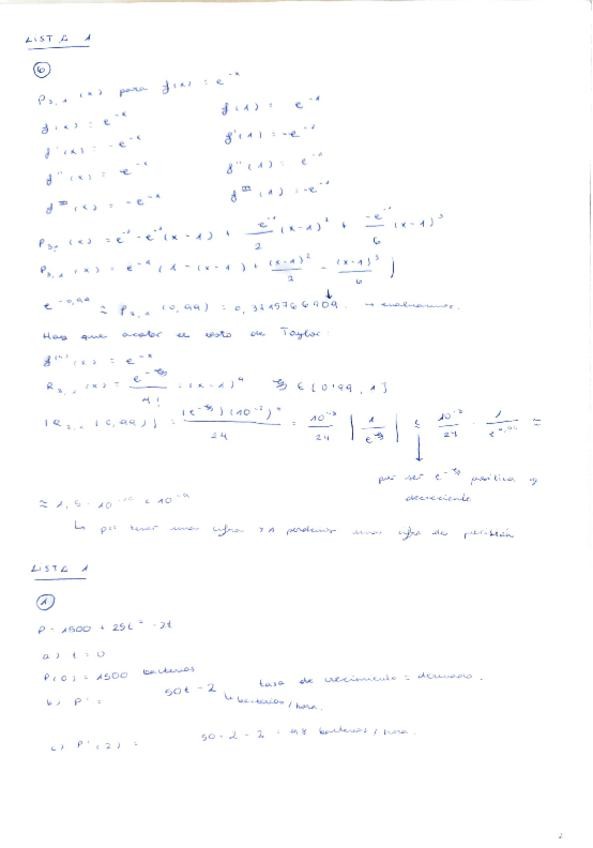 LISTA 1
⑥
P₃,₁(x) para f(x) = e^-x
f(x) = e^-x    f(1) = e^-1
f'(x) = -e^-x    f'(1) = -e^-1
f''(x) = e^-x    f''(1) = e^-1
f'''(x) = -e^-x    f'''(1) = -e^-1
P₃,₁(x) = e^-1 - e^-1(x-1) + e^-1/2 (x-1)² + -e^-1/6 (x-1)³
P₃,₁(x) = e^-1 (1 - (x-1) + (x-1)²/2 - (x-1)³/6)
e^-0,99 ≈ P₃,₁(0,99) = 0,3715766909. → evaluamos.
Hay que acotar el resto de Taylor:
f^(4)(x) = e^-x
R₃,₁(x) = e^-ξ/4! · (x-1)⁴    ξ ∈ [0'99, 1]
|R₃,₁(0,99)| = (e^-ξ)(10^-2)⁴/24 = 10^-8/24 |1/e^ξ| ≤ 10^-8/24 · 1/e^0,99 ≈
por ser e^-ξ positiva y
decreciente
≈ 1,5 · 10^-10 < 10^-9
↳ por tener una cifra >1 perdemos una cifra de precisión
LISTA 1
①
P = 1500 + 25t² - 2t
a) t = 0
P(0) = 1500 bacterias
b) P' = 50t - 2    tasa de crecimiento = derivada.
↳ bacterias/hora.
c) P'(2) = 50·2 - 2 = 98 bacterias/hora.